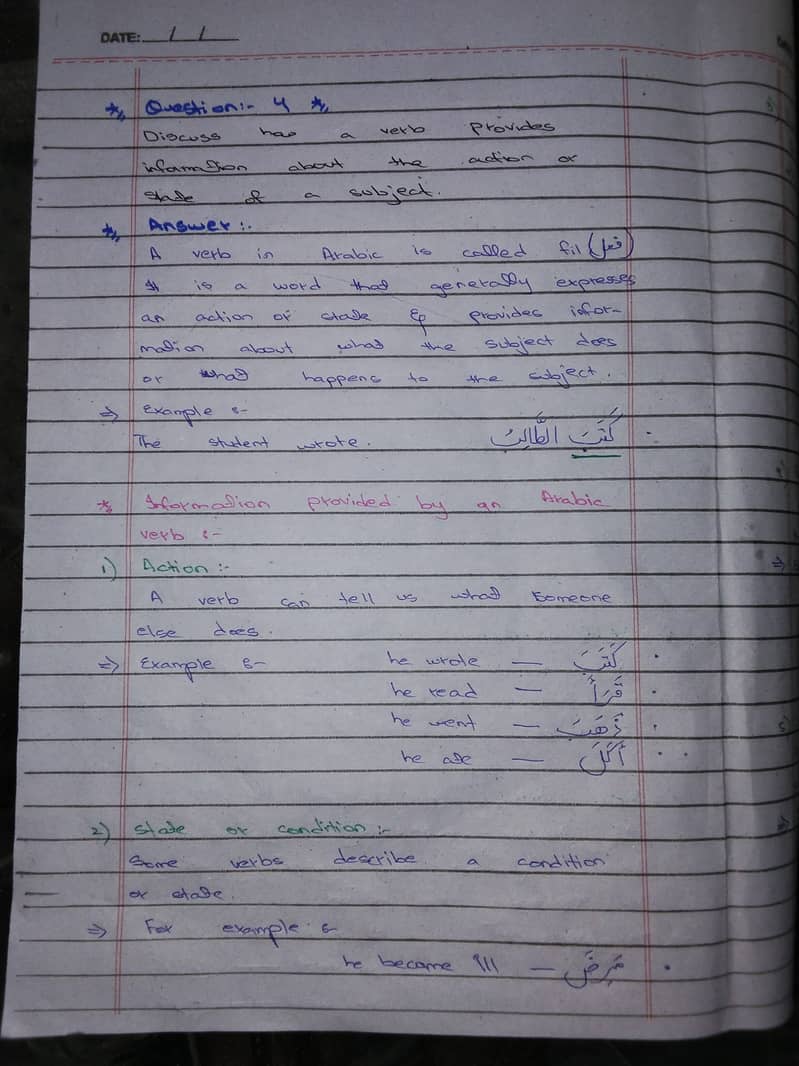 DATE: / /
Question:- 4
Discuss how a verb provides
information about the action or
state of a subject.
Answer:-
A verb in Arabic is called fil (فعل)
It is a word that generally expresses
an action or state & provides infor-
mation about what the subject does
or what happens to the subject.
⇒ Example :-
The student wrote. كَتَبَ الطَّالِبُ
* Information provided by an Arabic
verb :-
1) Action :-
A verb can tell us what someone
else does.
⇒ Example :- he wrote — كَتَبَ
he read — قَرَأَ
he went — ذَهَبَ
he ate — أَكَلَ
2) State or condition :-
Some verbs describe a condition
or state.
⇒ For example :-
he became ill — مَرِضَ